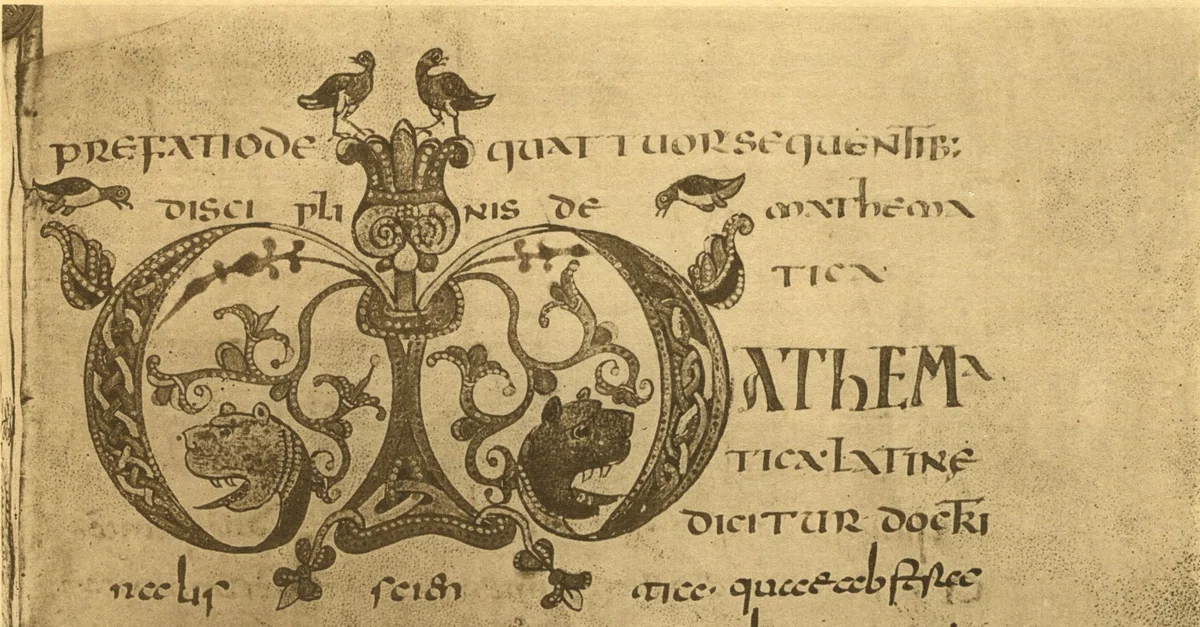 PREFATIO DE QUATTUOR SEQUENTIB:
DISCIPLINIS DE MATHEMA
TICA
MATHEMA
TICA·LATINE
DICITUR DOCTRI
nalis scientia· quae abstrac